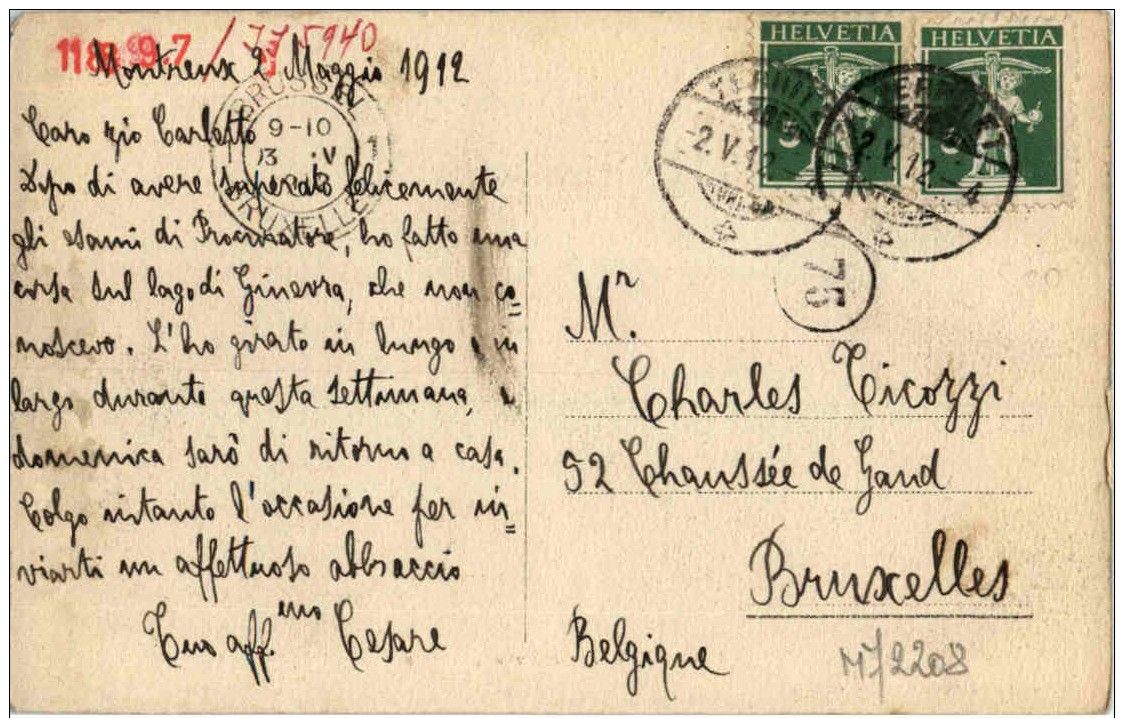 HELVETIA HELVETIA
1181 9.7 / 775940
Montreux 2 Maggio 1912
BRUSSEL
9-10
3 V
BRUXELLES
-2.V.12.-4
2.V.12-4
75
Caro zio Carletto
Dopo di avere superato felicemente
gli esami di Procuratore, ho fatto una
corsa sul lago di Ginevra, che non co=
noscevo. L'ho girato in lungo e in
largo durante questa settimana, e
domenica sarò di ritorno a casa.
Colgo intanto l'occasione per in=
viarti un affettuoso abbraccio
Tuo aff.mo Cesare
Mr.
Charles Ticozzi
52 Chaussée de Gand
Bruxelles
Belgique
M72208